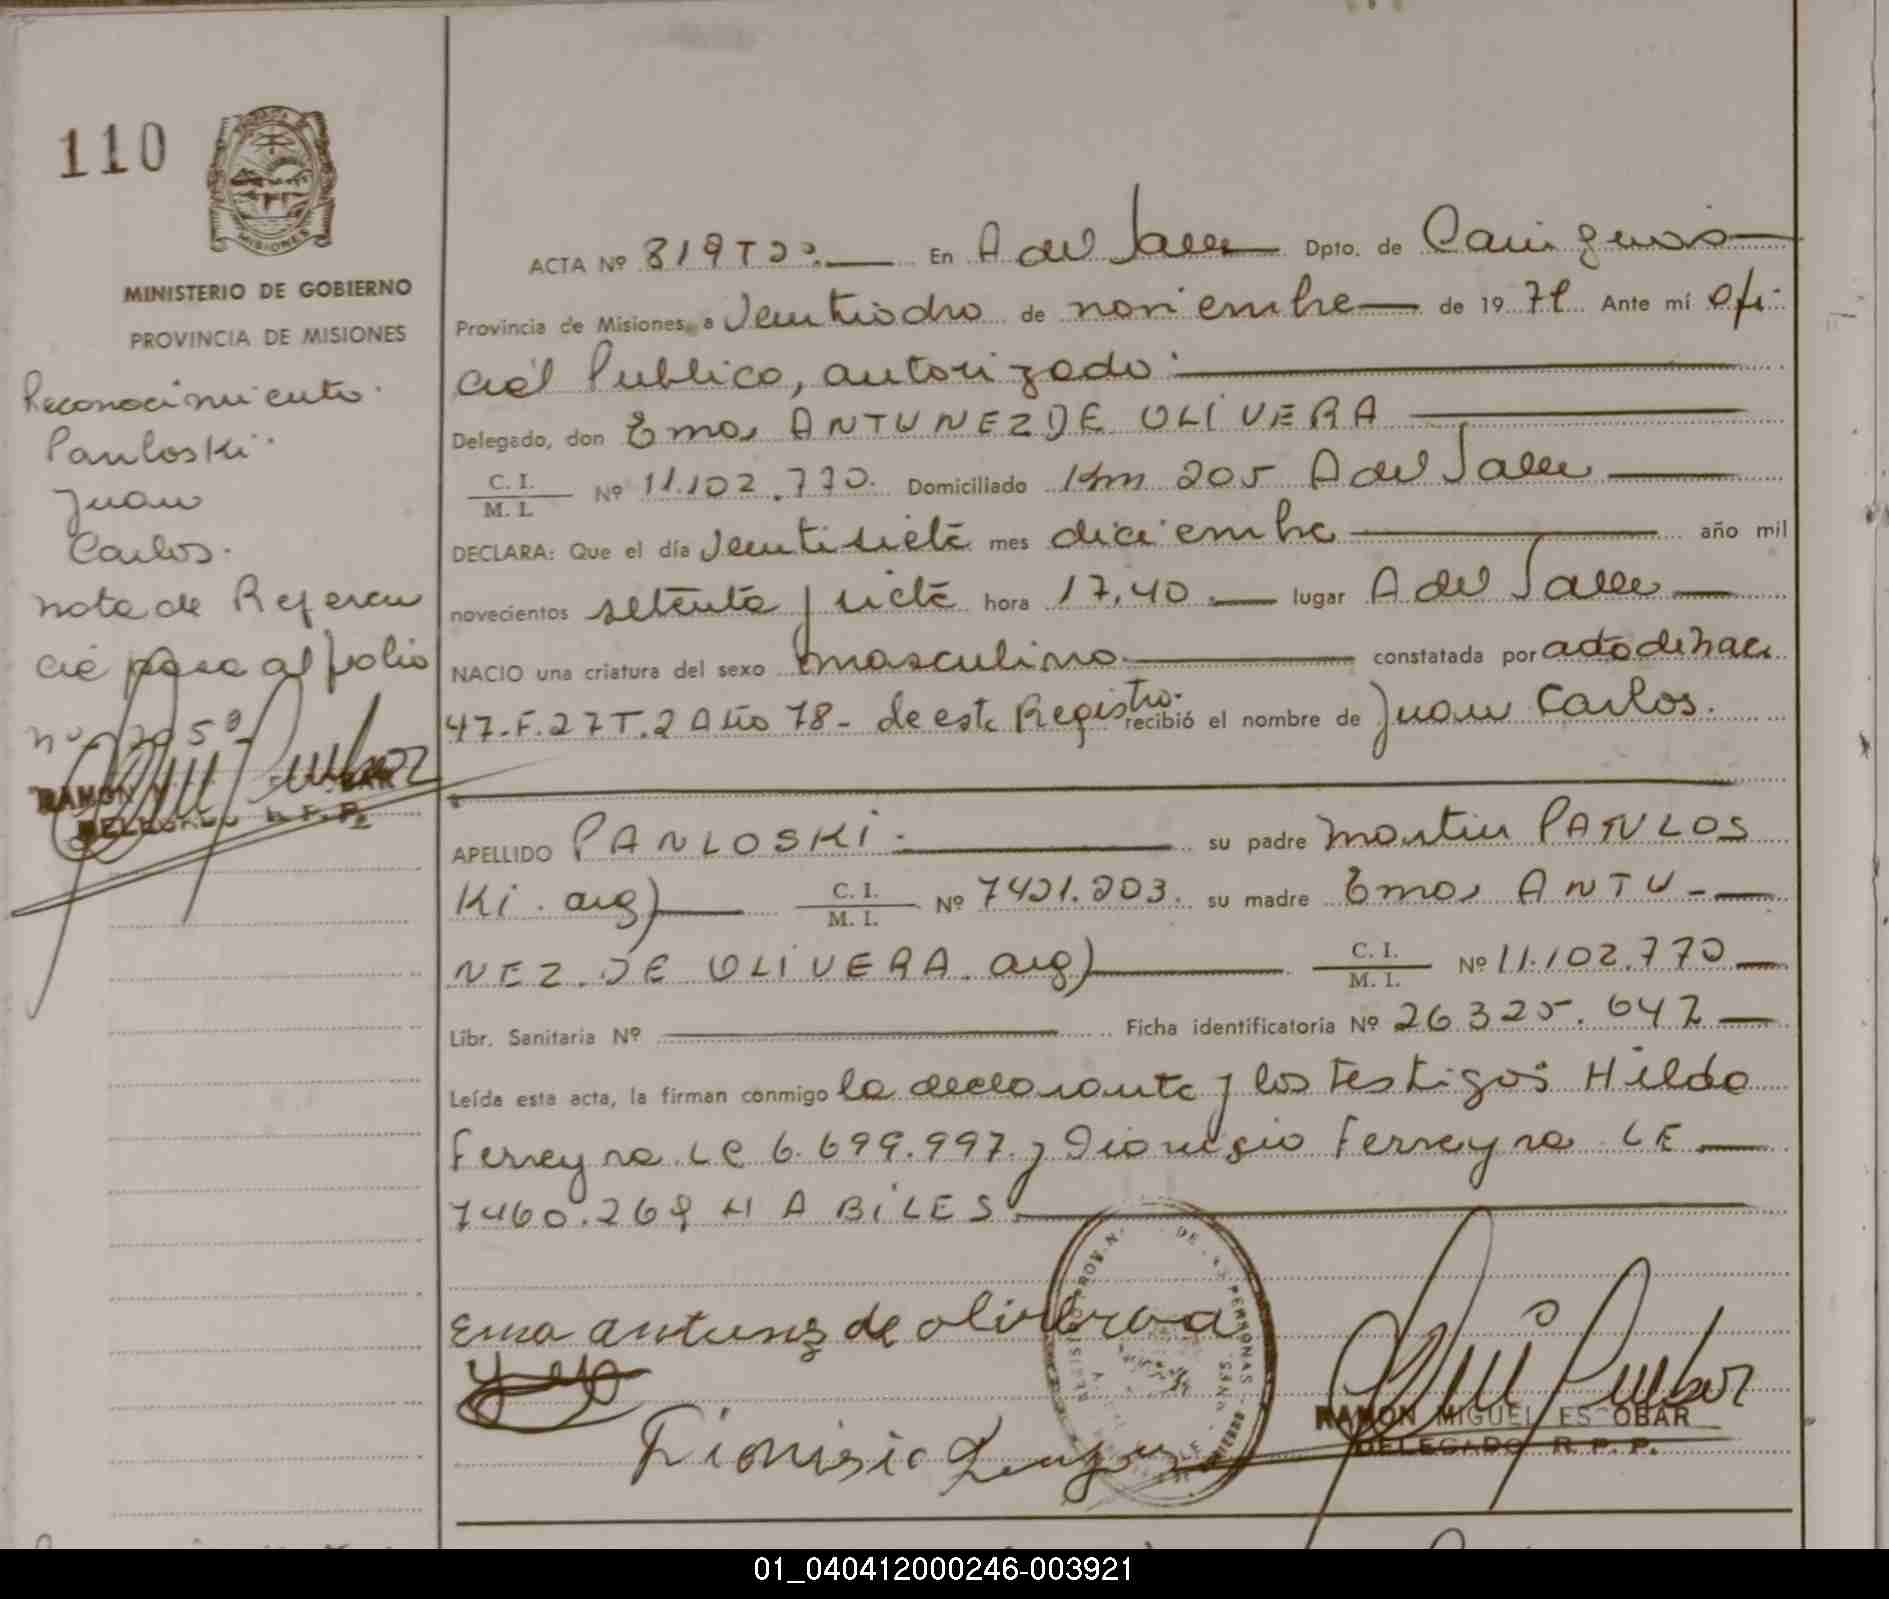 110
MISIONES
MINISTERIO DE GOBIERNO
PROVINCIA DE MISIONES
Reconocimiento
Panloski
Juan
Carlos.
nota de Referen
cia para al folio
nº
RAMON
ACTA Nº 819 T2º. En A del Valle Dpto. de Cainguas
Provincia de Misiones, a Veintiocho de noviembre de 19 78 Ante mí ofi
cial Publico, autorizado
Delegado, don Ema ANTUNEZ DE OLIVERA
C. I. / M. I. Nº 11.102.770. Domiciliado Km 205 A del Valle
DECLARA: Que el día Veintisiete mes diciembre año mil
novecientos setenta y siete hora 17,40 lugar A del Valle
NACIO una criatura del sexo masculino constatada por acta de naci
47-F.27 T.2 Año 78- de este Registro. recibió el nombre de Juan Carlos.
APELLIDO PANLOSKI su padre Martin PANLOS
KI. arg) C. I. / M. I. Nº 7421.203. su madre Ema ANTU-
NEZ DE OLIVERA. arg) C. I. / M. I. Nº 11.102.770
Libr. Sanitaria Nº Ficha identificatoria Nº 26.325.647
Leída esta acta, la firman conmigo la declarante y los testigos Hilda
Ferreyra LC 6.699.997. y Dionisio Ferreyra LE
7460.268 HABILES
Ema antunez de olivera
Dionisio
RAMON MIGUEL ESCOBAR
DELEGADO R. P. P.
01_040412000246-003921